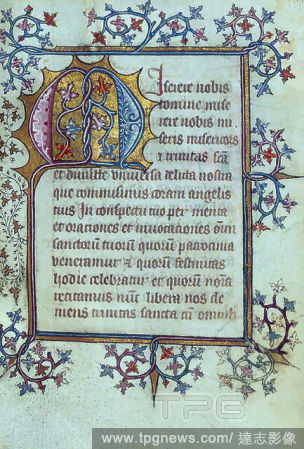 Miserere nobis
domine mise
rere nobis mi
seris misericors
et trinitas sca
et dimitte universa delicta nostra
que commisimus coram angelis
tuis In conspectu tuo per merita
et oraciones et invocationes oim
sanctorum tuorum quorum
veneramur et quorum festivitas
hodie celebratur et quorum noia
recitamus nuc libera nos de
mens trinitas sancta cu omnib
TPG
www.tpgnews.com/ 達志影像